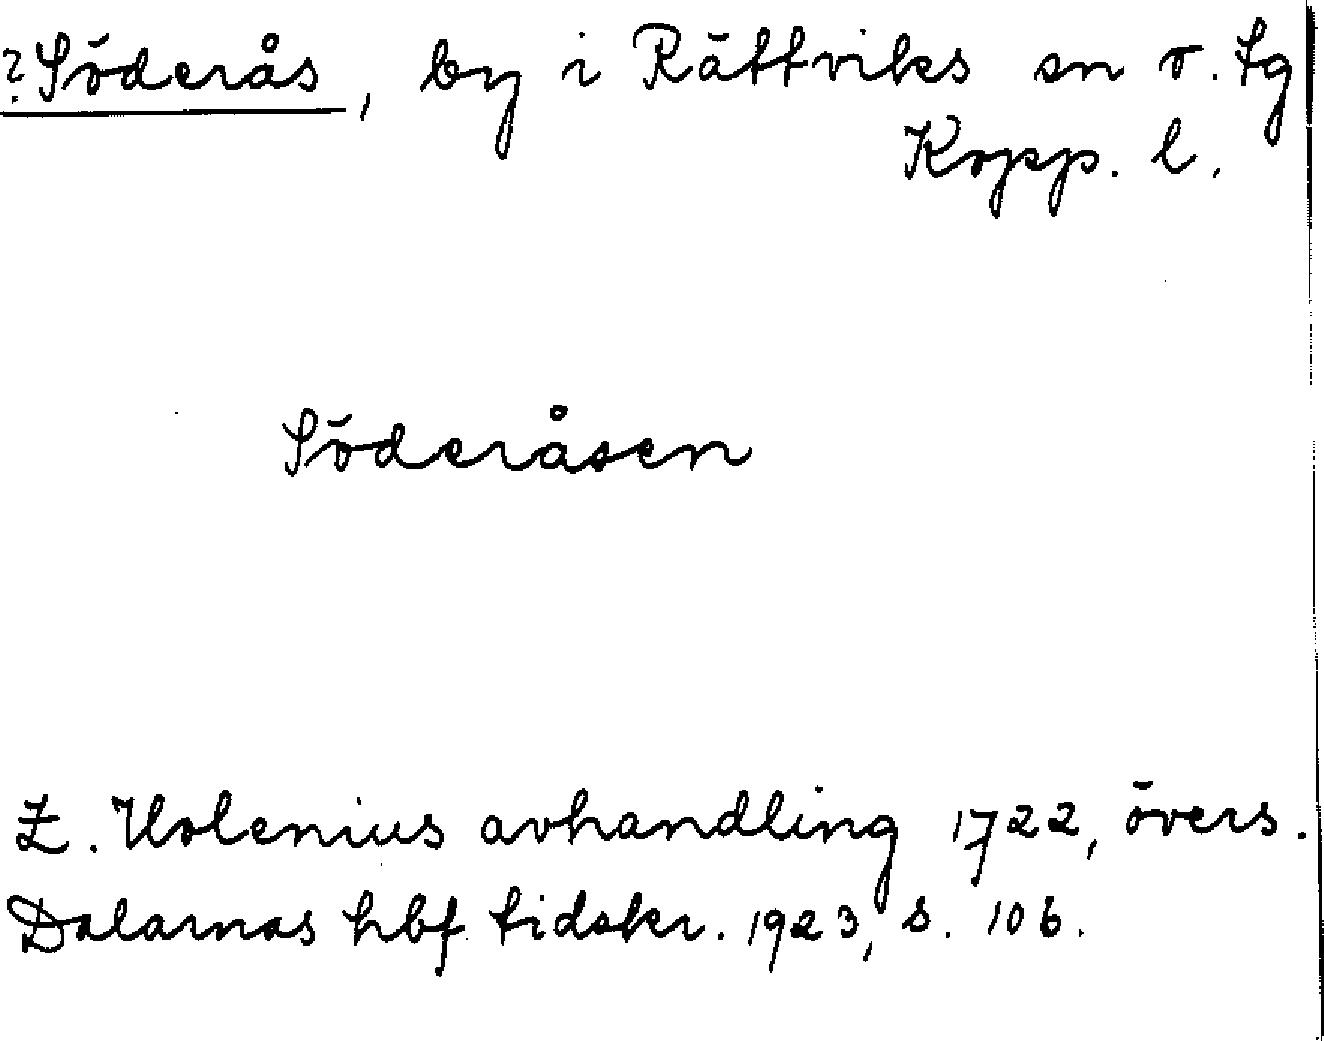 ?Söderås, by i Rättviks sn o. tg
Kopp. l.
Söderåsen
Z. Holenius avhandling 1722, övers.
Dalarnas hbf. tidskr. 1923, s. 106.